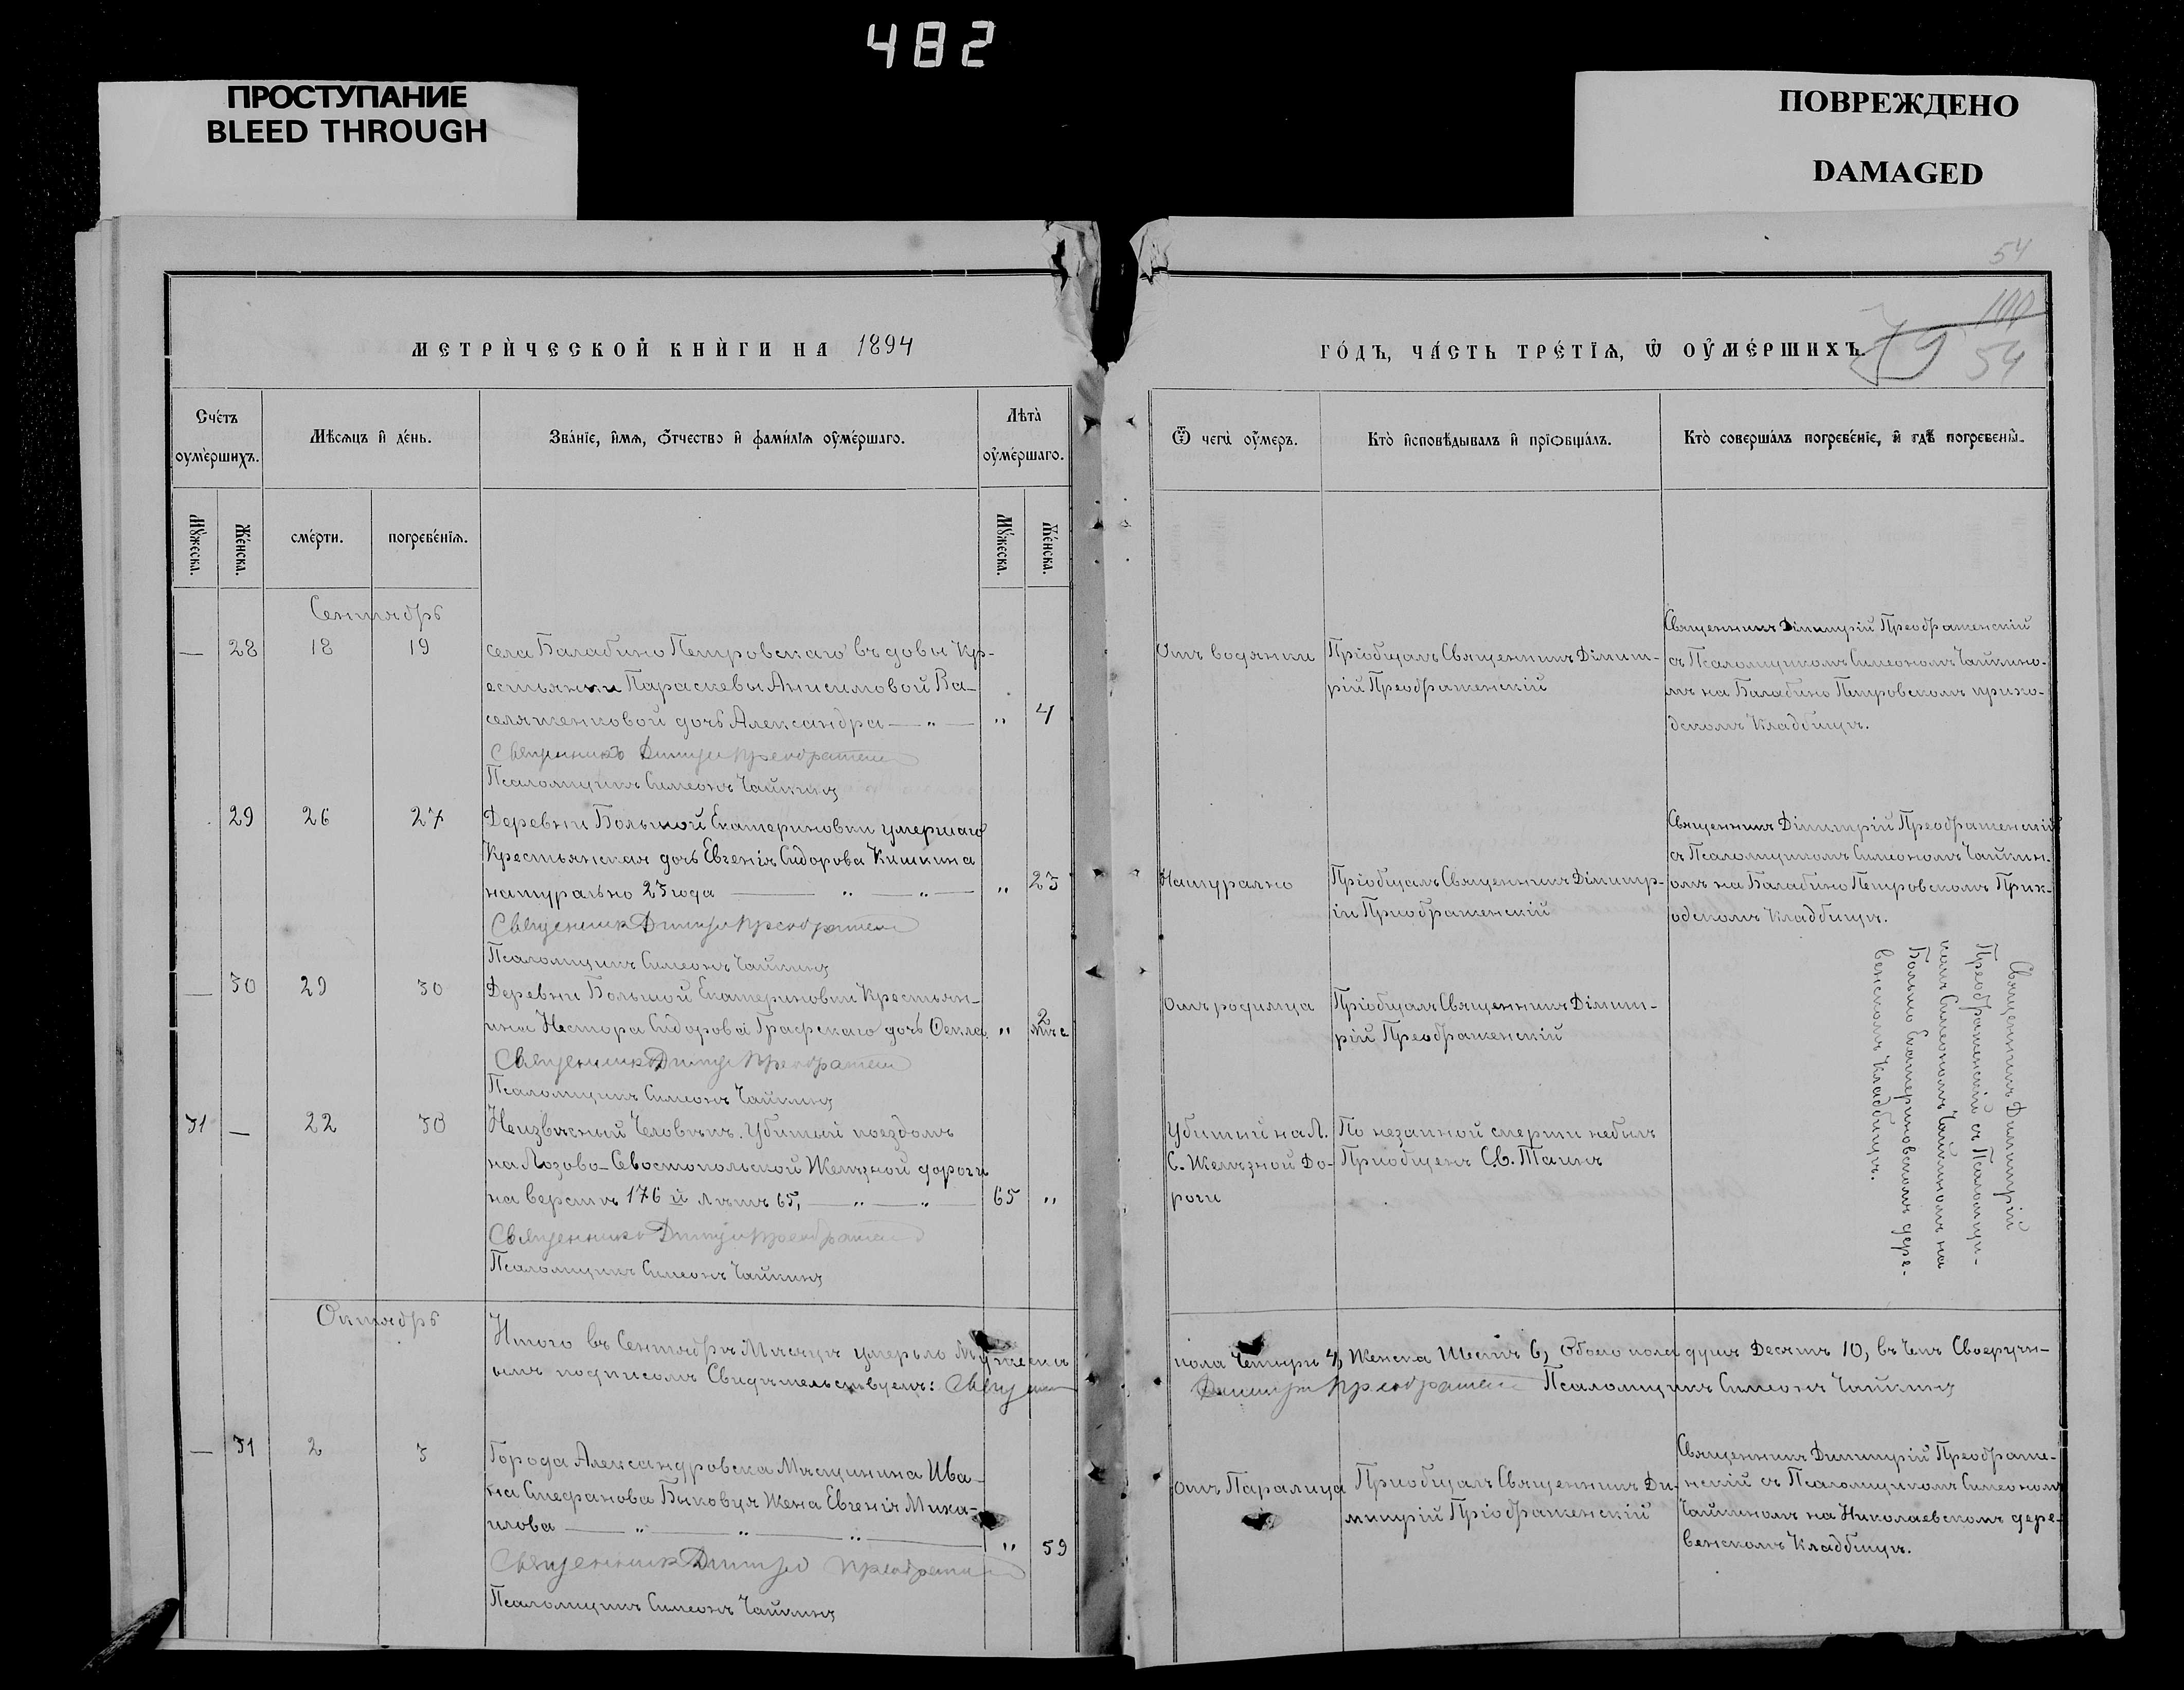 482
ПРОСТУПАНИЕ
BLEED THROUGH
ПОВРЕЖДЕНО
DAMAGED
54
МЕТРИ́ЧЕСКОЙ КНИ́ГИ НА 1894
ГО́ДЪ, ЧА́СТЬ ТРЕ́ТІѦ, Ѿ ОУ҆МЕ́РШИХЪ.
100
79
54
Сче́тъ
оумершихъ.
Мѣ́сѧцъ и҆ де́нь.
Зва́нїе, и҆мѧ, ѻ҆́тчество и҆ фами́лїѧ оу҆ме́ршаго.
Лѣта̀
оу҆ме́ршаго.
Ѿ чегѡ̀ оу҆́меръ.
Кто̀ и҆сповѣ́дывалъ и҆ прїѡбща́лъ.
Кто̀ соверша́лъ погребе́нїе, и҆ гдѣ̀ погребены̀.
Мꙋ́жеска.
Же́нска.
сме́рти.
погребе́нїѧ.
Мꙋ́жеска.
Же́нска.
Сентябрь
— 28 18 19
села Балабино Петровскаго вдовы Кр-
естьянки Параскевы Анисимовой Ва-
селяженковой дочь Александра — „ — „ 4
Священникъ Димитрій Преображен
Псаломщикъ Симеонъ Чайкинъ
Отъ водянки
Пріобщалъ Священникъ Димит-
рій Преображенскій
Священникъ Димитрій Преображенскій
съ Псаломщикомъ Симеономъ Чайкино-
мъ на Балабино Петровскомъ прихо-
дскомъ Кладбищѣ.
29 26 27
Деревни Большой Екатериновки умершаго
Крестьянская дочь Евгенія Сидорова Кишкина
натурально 23 года — „ — „ — „ 23
Священникъ Димитрій Преображен
Псаломщикъ Симеонъ Чайкинъ
Натурално
Пріобщалъ Священникъ Димитр-
ій Приображенскій
Священникъ Димитрій Преображенскій
съ Псаломщикомъ Симеономъ Чайкин-
омъ на Балабино Петровскомъ Прих-
одскомъ Кладбищѣ.
— 30 29 30
Деревни Большой Екатериновки Крестьян-
ина Нестора Сидорова Графскаго дочь Оекла „ 2 мѣс
Священникъ Димитрій Преображен
Псаломщикъ Симеонъ Чайкинъ
Отъ родимца
Пріобщалъ Священникъ Димит-
рій Преображенскій
Священникъ Димитрій
Преображенскій съ Псаломщи-
комъ Симеономъ Чайкиномъ на
Больше Екатериновскомъ дере-
венскомъ Кладбищѣ.
31 — 22 30
Неизвѣсный Человѣкъ. Убитый поездомъ
на Лозово-Севостопольской Желѣзной дороги
на верстѣ 176 й лѣтъ 65, — „ — „ — 65 „
Священникъ Димитрій Преображен
Псаломщикъ Симеонъ Чайкинъ
Убитый на Л.
С. Желѣзной До-
роги
По незапной смерти небылъ
Приобщенъ Св. Таинъ
Октябрь
Итого въ Сентябрѣ Мѣсяцѣ умерьло Мужеска
пола Четыри 4, Женска Шесть 6, Обоего пола душъ Десять 10, въ Чемъ Своеручн-
ымъ подписомъ Свидѣтельствуемъ: Священ
Димитрій Преображен Псаломщикъ Симеонъ Чайкинъ
— 31 2 3
Города Александровска Мѣщинина Ива-
на Стефанова Быковця Жена Евгенія Миха-
илова — „ — „ — „ — „ 59
Священникъ Димитрій Преображен
Псаломщикъ Симеонъ Чайкинъ
Отъ Паралица
Приобщалъ Священникъ Ди-
митрій Пріображенскій
Священникъ Димитрій Преображе-
нскій съ Псаломщикомъ Симеономъ
Чайкиномъ на Николаевскомъ дере-
венскомъ Кладбищѣ.